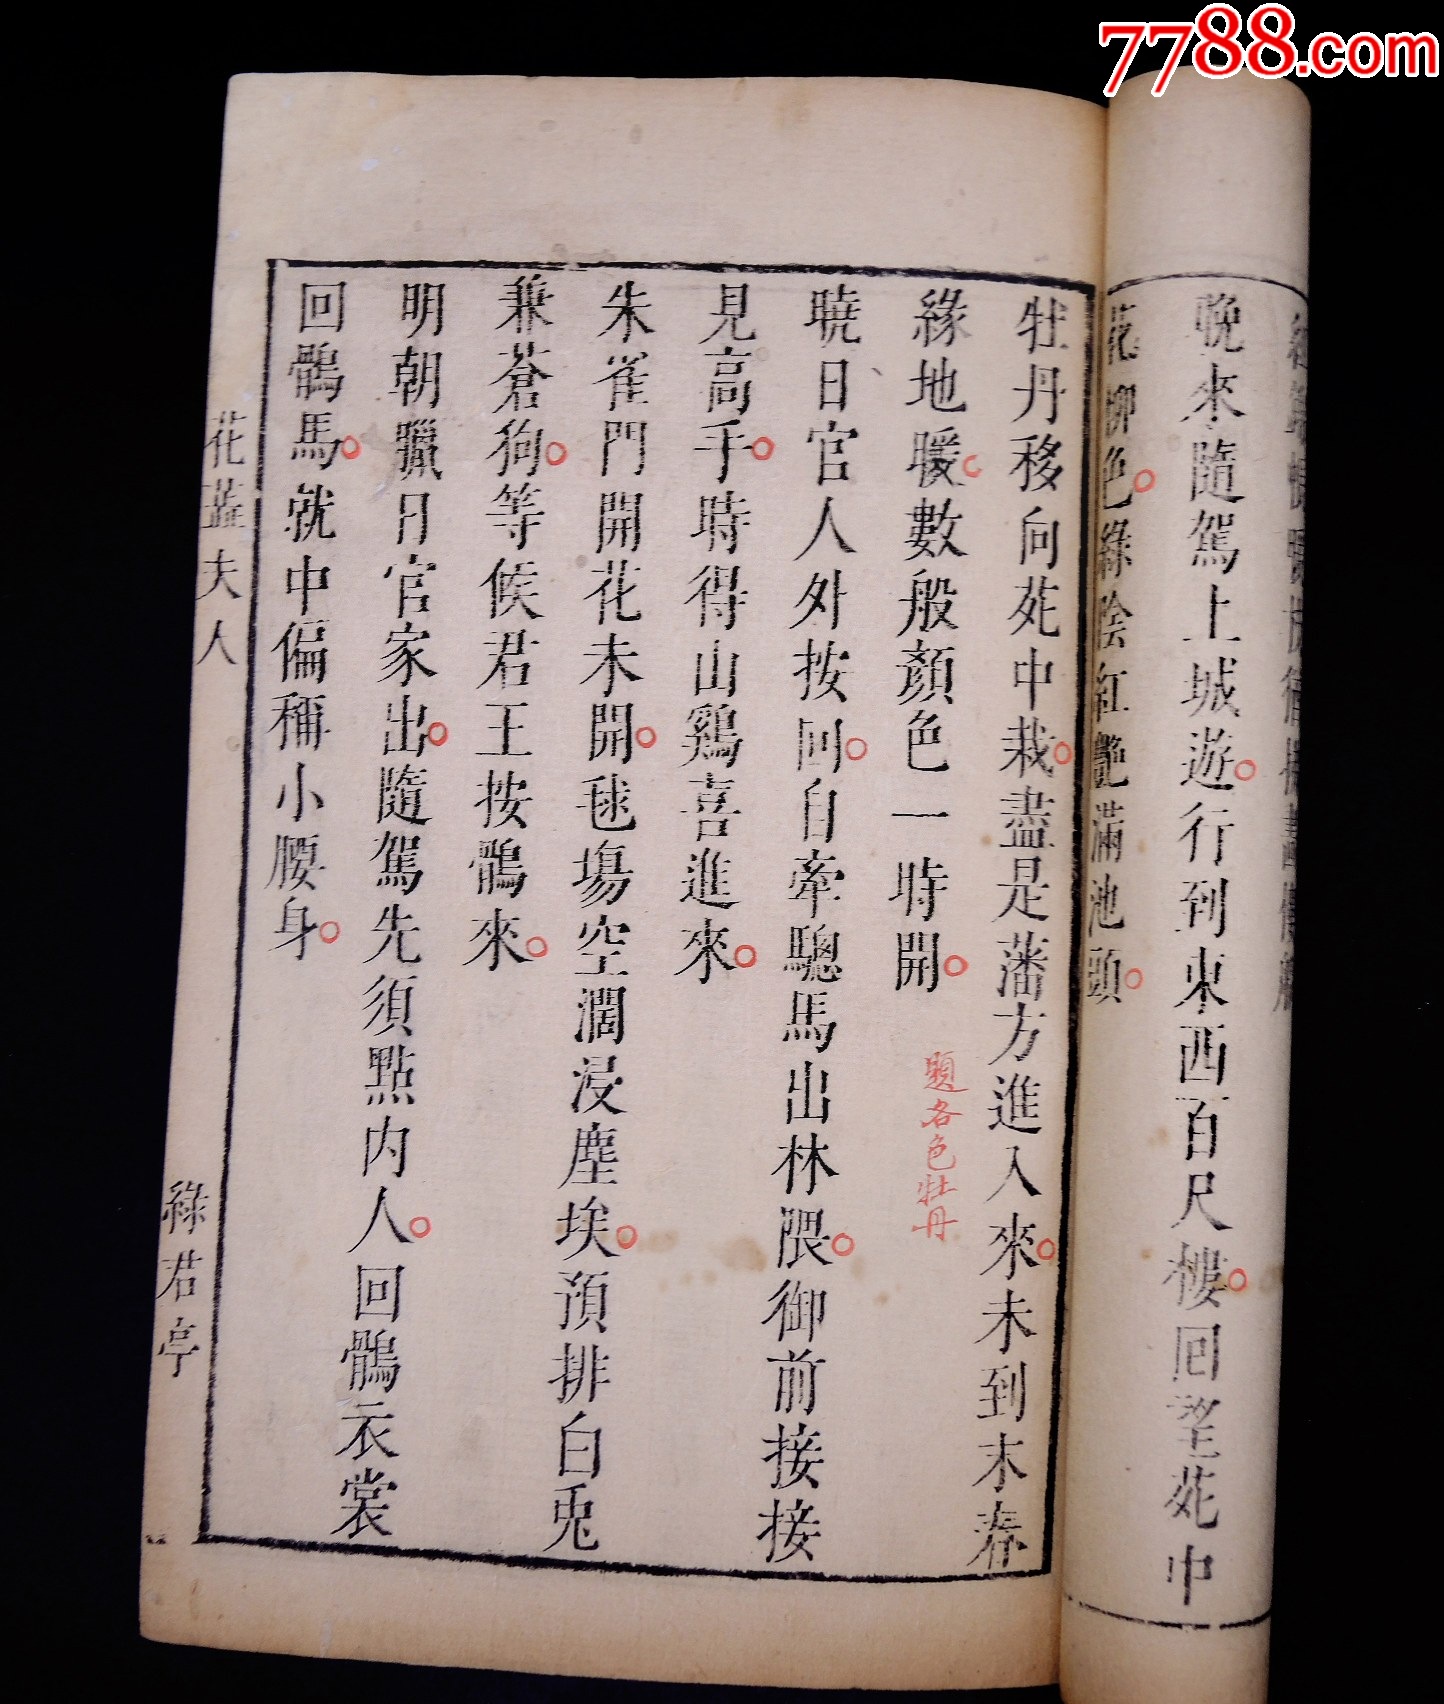 7788.com
晩來隨駕上城遊行到東西百尺樓回望苑中
花柳色綠陰紅艷滿池頭
牡丹移向苑中栽盡是藩方進入來未到末春
緣地暖數般顏色一時開
題各色牡丹
曉日官人外按回自牽驄馬出林隈御前接接
見高手時得山鷄喜進來
朱雀門開花未開毬塲空濶浸塵埃預排白兎
兼蒼狗等候君王按鶻來
明朝獵日官家出隨駕先須點内人回鶻衣裳
回鶻馬就中偏稱小腰身
花蕋夫人
綠君亭